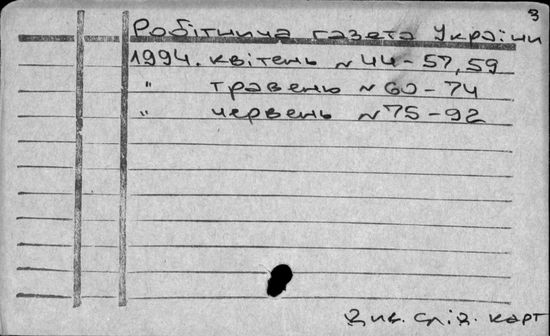 3
Робітнича газета України
1994. квітень N44-57,59
" травень N60-74
" червень N75-92
Див. слід. карт